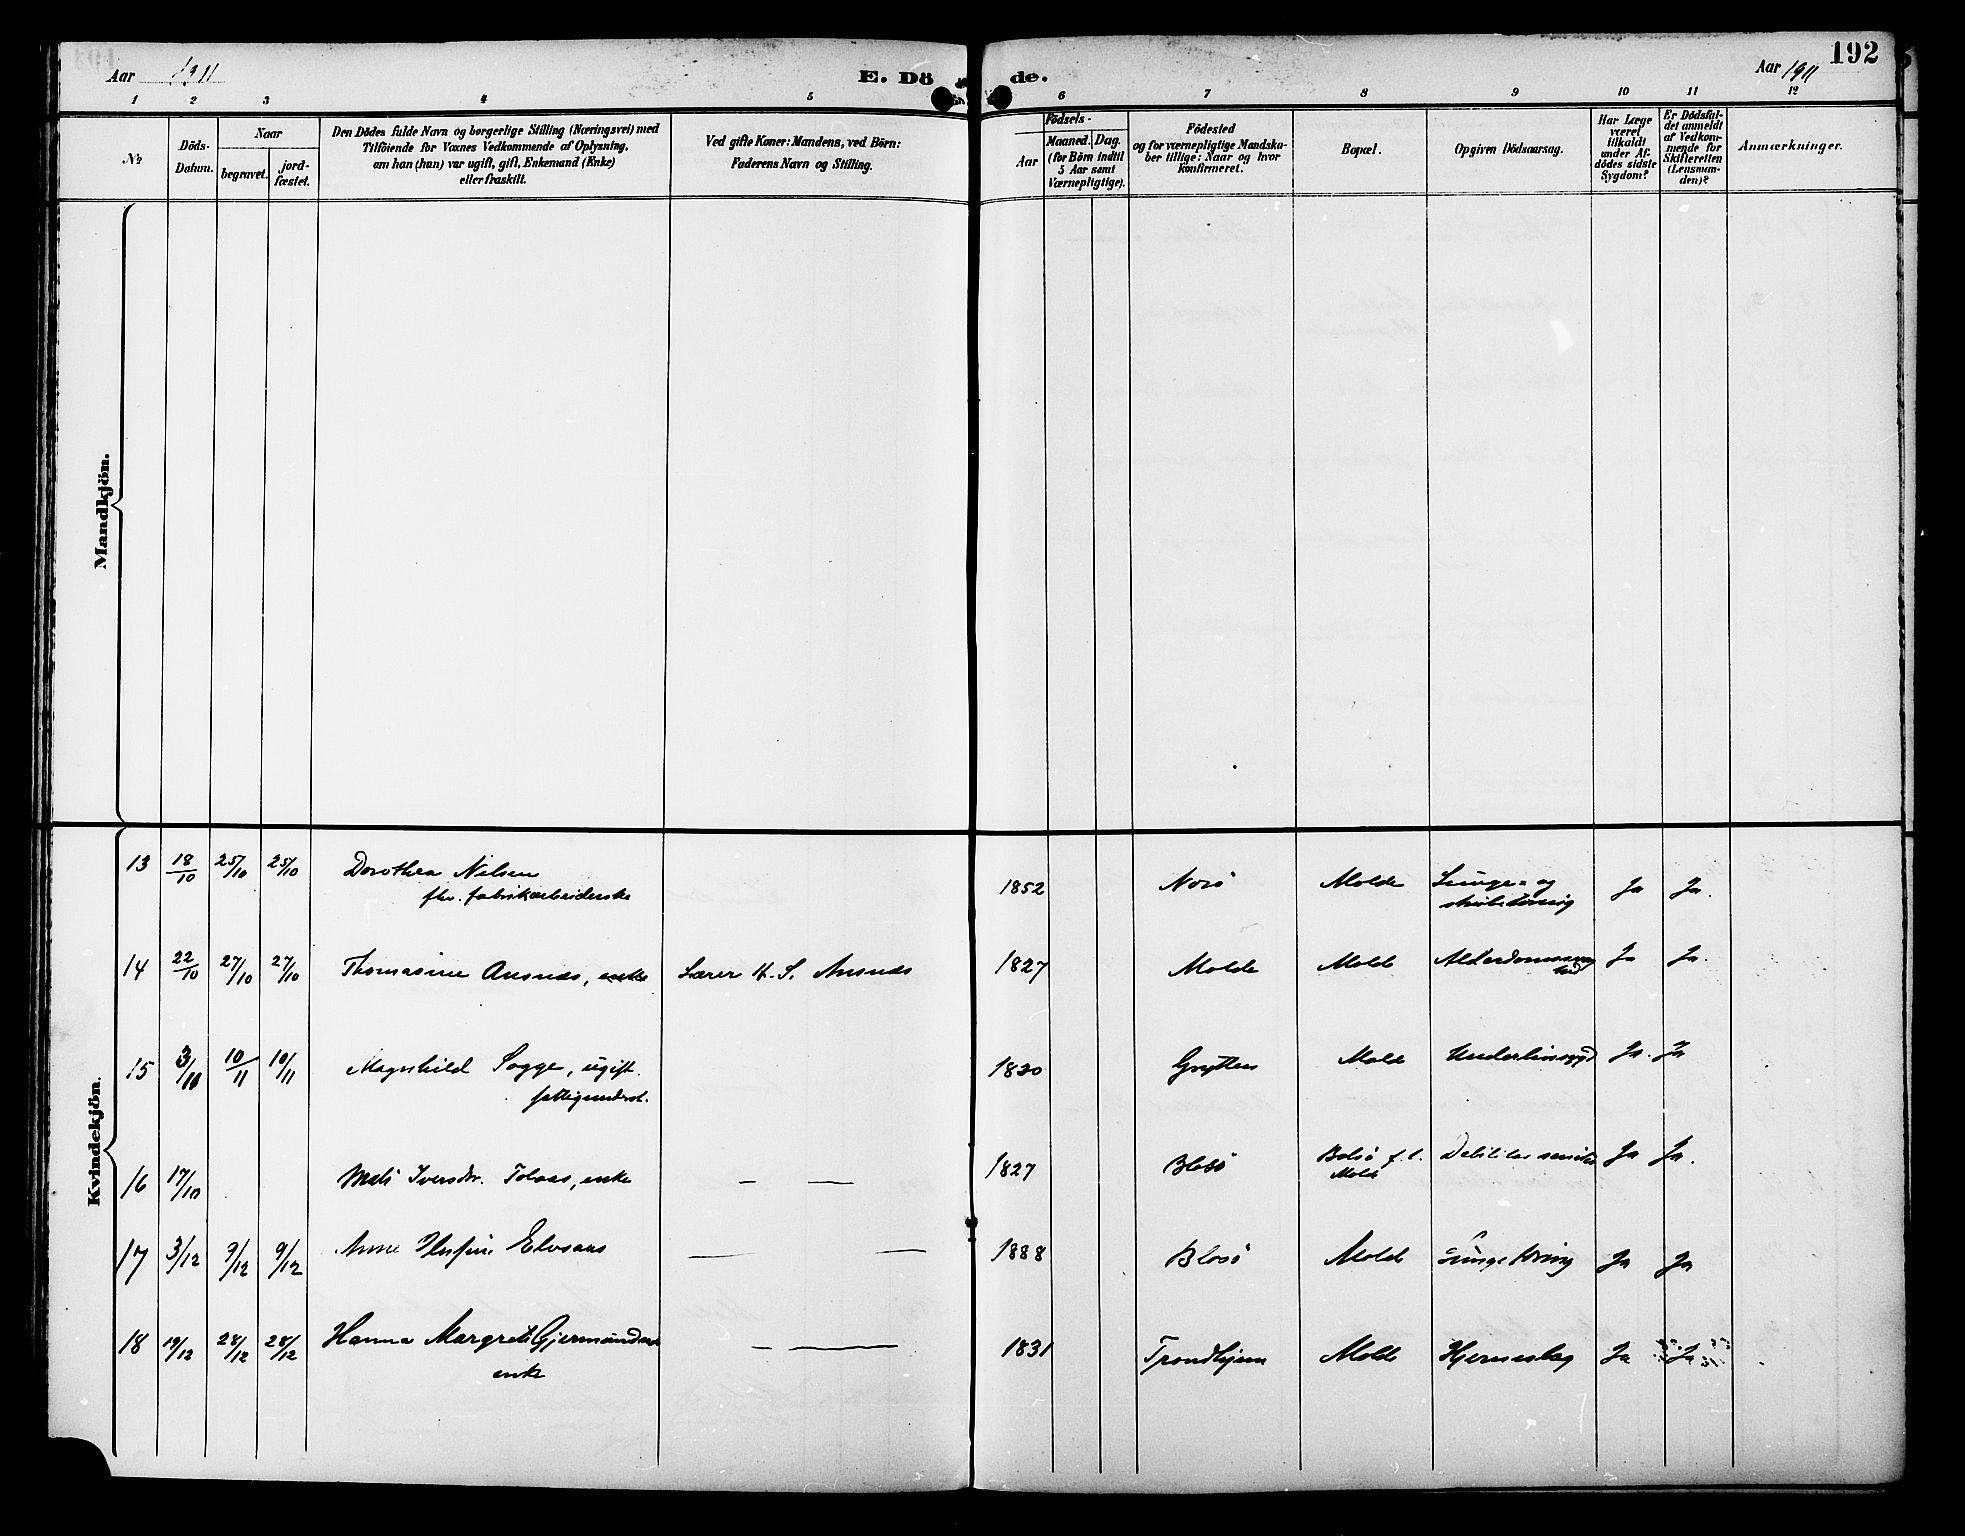 192
Aar 1911
E. Döde.
Aar 1911
1 2 3 4 5 6 7 8 9 10 11 12
No
Döds-Datum.
Naar
begravet.
jord-fæstet.
Den Dödes fulde Navn og borgerlige Stilling (Næringsvei) med
Tilföiende for Voxnes Vedkommende af Oplysning,
om han (hun) var ugift, gift, Enkemand (Enke)
eller fraskilt.
Ved gifte Koner: Mandens, ved Börn:
Faderens Navn og Stilling.
Födsels-
Aar
Maaned.
Dag.
(for Börn indtil
5 Aar samt
Værnepligtige).
Födested
og for værnepligtige Mandska-
ber tillige: Naar og hvor
konfirmeret.
Bopæl.
Opgiven Dödsaarsag.
Har Læge
været
tilkaldt
under Af-
dödes sidste
Sygdom?
Er Dödsfal-
det anmeldt
af Vedkom-
mende for
Skifteretten
(Lensman-
den)?
Anmærkninger.
Mandkjön.
Kvindekjön.
13 18/10 25/10 25/10 Dorothea Nilsen 1852 Molde Lunge- og Ja Ja.
fabrikarbeiderske
14 22/10 27/10 27/10 Thomasine Ausnæs, enke Lærer H. S. Ausnæs 1827 Molde Molde Ja Ja.
15 10/11 10/11 Magnhild Sogge, ugift. 1830 Grytten Molde Ja. Ja
fattigunderst.
16 17/10 Iversdr. Tolaas, enke — — 1827 Bolsö f. l. Ja Ja.
Molde
17 3/12 9/12 9/12 Anne Elvsaas — — 1888 Molde Ja Ja
18 19/12 28/12 28/12 Hanna Margrete — — 1831 Trondhjem Molde Hjerneslag Ja Ja
enke